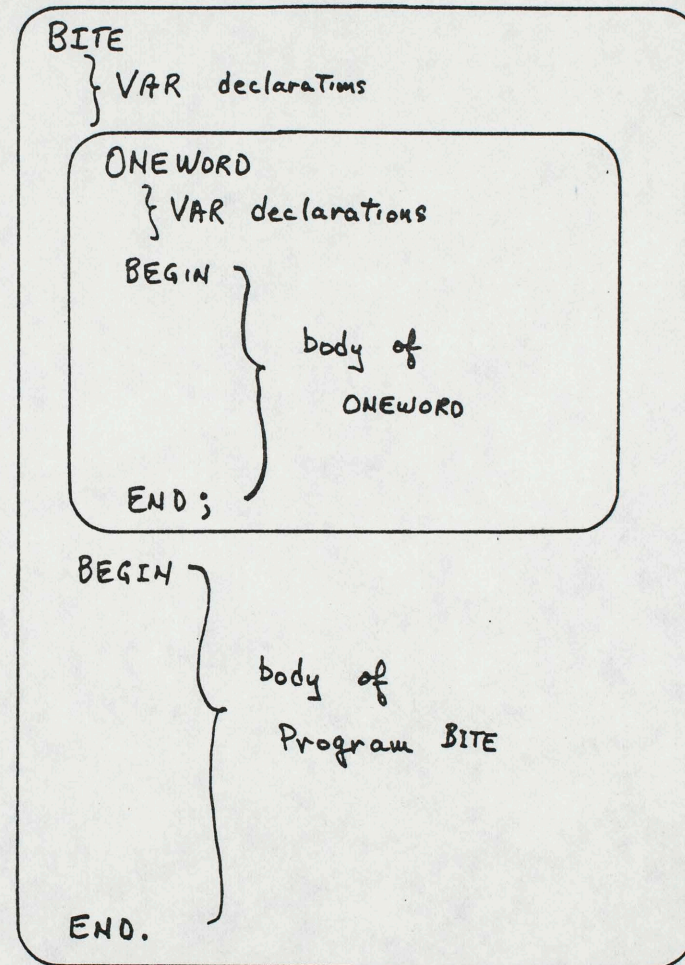 BITE
VAR declarations
ONEWORD
VAR declarations
BEGIN
body of
ONEWORD
END;
BEGIN
body of
Program BITE
END.